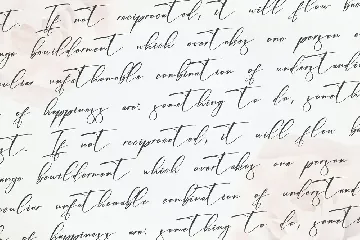 st. If not reciprocated, it will flow
ange bewilderment which overtakes one person
culiar unfathomable combination of understandi
of happiness are: something to do, someth
st. If not reciprocated, it will flow b
ange bewilderment which overtakes one person
culiar unfathomable combination of understand
of happiness are: something to do, somet